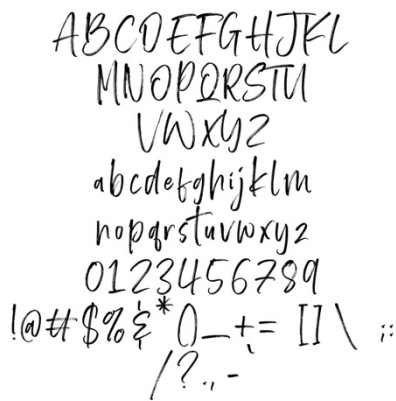 ABCDEFGHIJKL
MNOPQRSTU
VWXYZ
abcdefghijklm
nopqrstuvwxyz
0123456789
!@#$%&*()_+= [] \ ;:
/?.,-